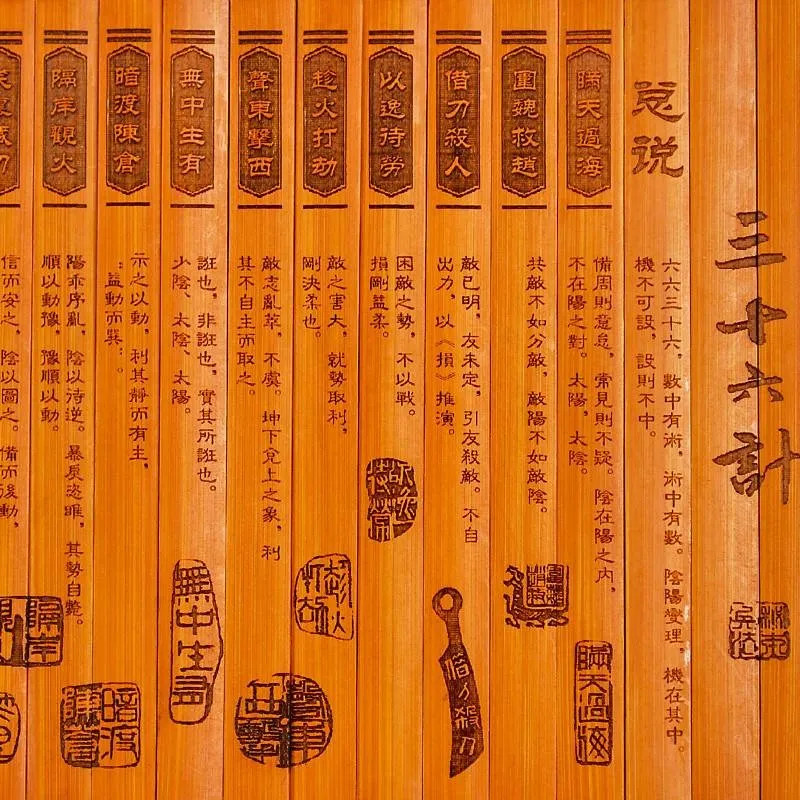 三十六計
总说
六六三十六，數中有術，術中有數。陰陽燮理，機在其中。
機不可設，設則不中。
瞞天過海
備周則意怠，常見則不疑。陰在陽之內，
不在陽之對。太陽，太陰。
瞞天過海
圍魏救趙
共敵不如分敵，敵陽不如敵陰。
圍魏救趙
借刀殺人
敵已明，友未定，引友殺敵。不自
出力，以《損》推演。
借刀殺
以逸待勞
困敵之勢，不以戰。
損剛益柔。
以逸待勞
趁火打劫
敵之害大，就勢取利，
剛決柔也。
趁火打劫
聲東擊西
敵志亂萃，不虞。坤下兌上之象，利
其不自主而取之。
聲東擊西
無中生有
誑也，非誑也，實其所誑也。
少陰、太陰、太陽。
無中生有
暗渡陳倉
示之以動，利其靜而有主，
益動而巽
暗渡陳倉
隔岸觀火
陽乖序亂，陰以待逆。暴戾恣睢，其勢自斃。
順以動豫，豫順以動。
隔岸
信而安之，陰以圖之。備而後動，